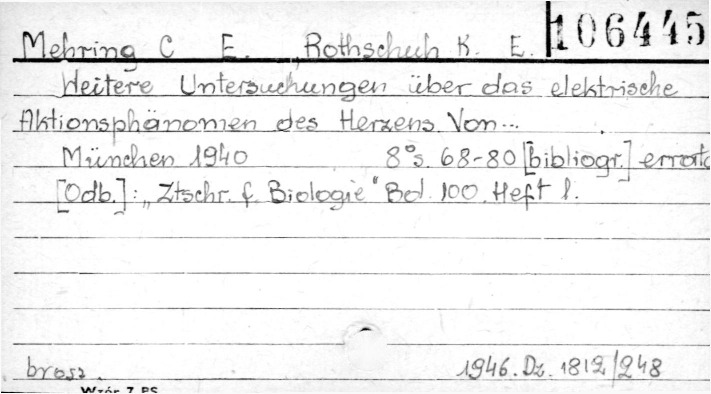 106445
Mehring C E., Rothschuh K. E.
Weitere Untersuchungen über das elektrische
Aktionsphänomen des Herzens. Von...
München 1940 8° s. 68-80 [bibliogr.] errata
[Odb.]: „Ztschr. f. Biologie" Bd. 100. Heft 1.
brosz. 1946. Dz. 1812/248
Wzór 7 PS